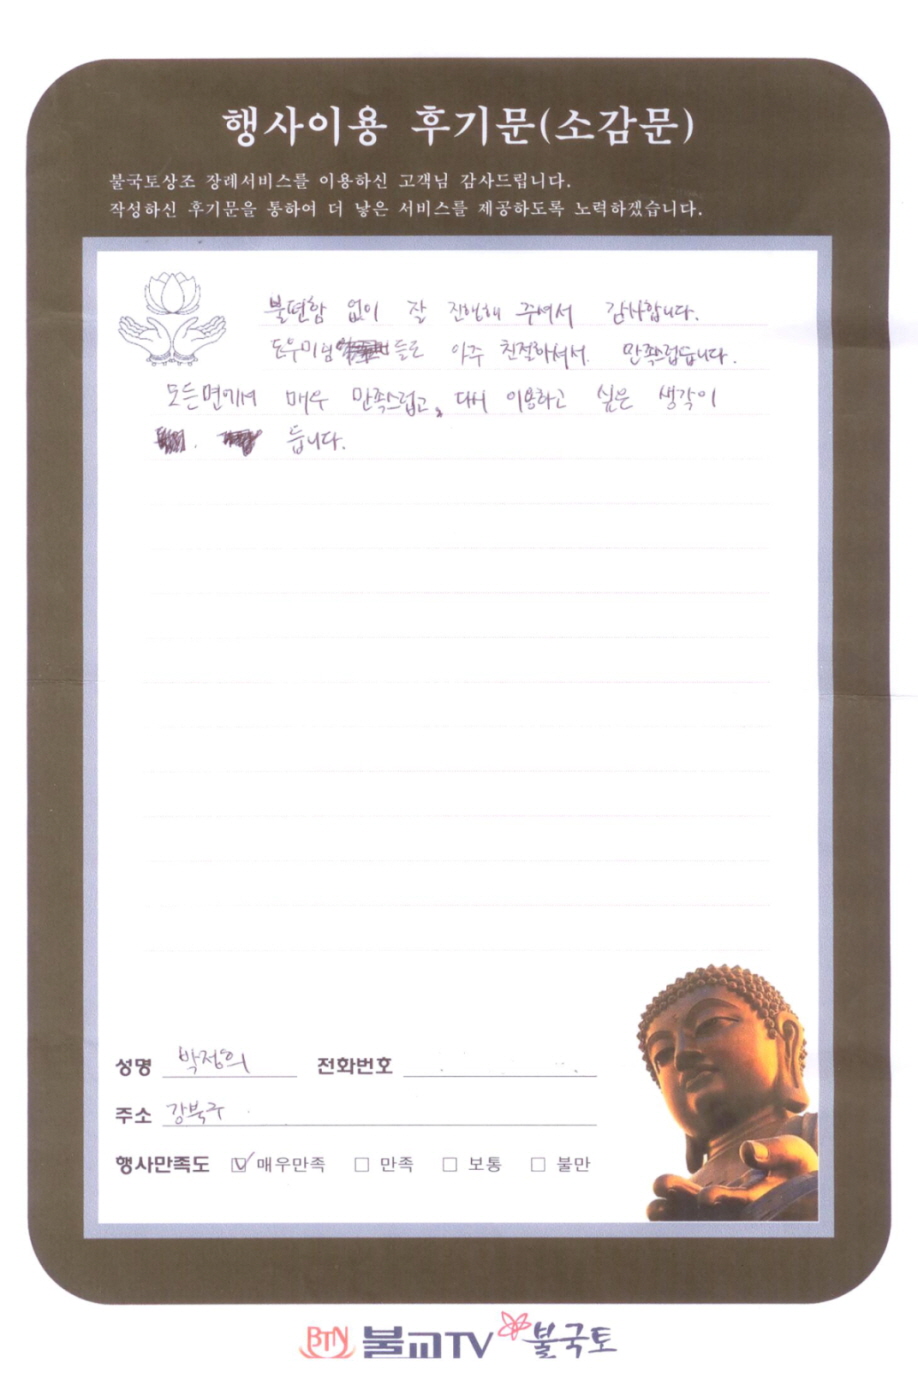 행사이용 후기문(소감문)
불국토상조 장례서비스를 이용하신 고객님 감사드립니다.
작성하신 후기문을 통하여 더 낳은 서비스를 제공하도록 노력하겠습니다.
불편함 없이 잘 진행해 주셔서 감사합니다.
도우미님 들도 아주 친절하셔서 만족스럽습니다.
모든면에서 매우 만족스럽고, 다시 이용하고 싶은 생각이
듭니다.
성명 박정의 전화번호
주소 강북구
행사만족도 ☑ 매우만족 □ 만족 □ 보통 □ 불만
BTN 불교TV 불국토